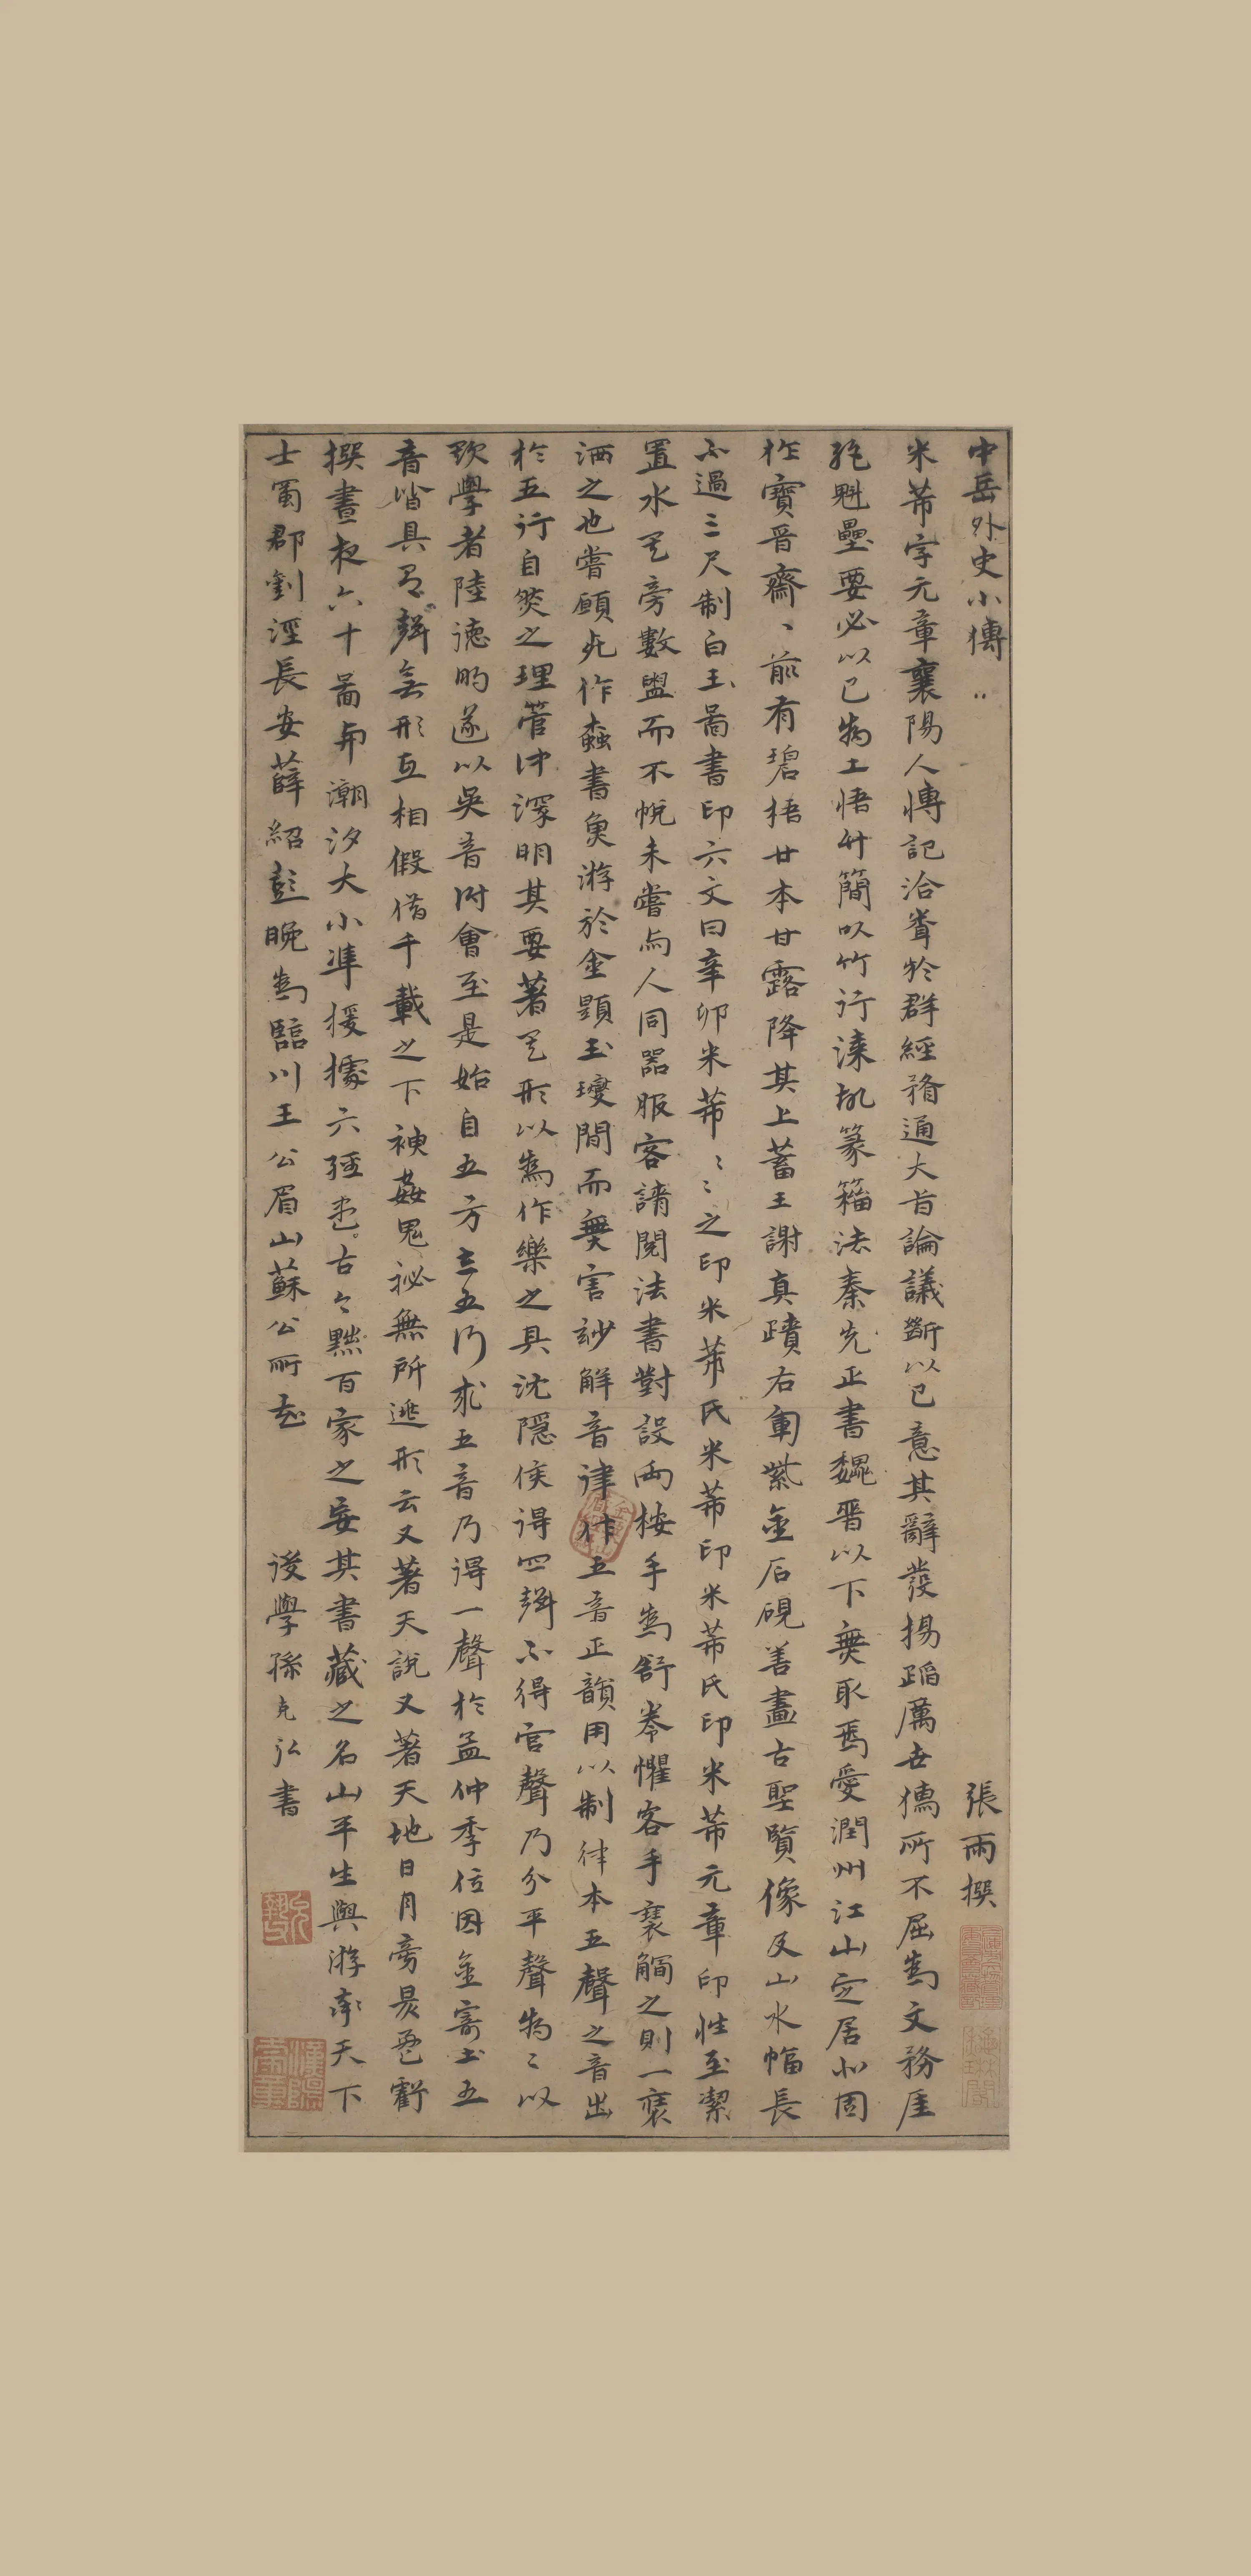 中岳外史小傳 張雨撰
米芾字元章襄陽人傳記洽聞於群經務通大旨論議斷以己意其辭發揚蹈厲世儒所不屈為文務崖
絕魁壘要必以己為土悟竹簡以竹行漆故篆籀法秦先正書魏晉以下無取焉愛潤州江山定居北固
作寶晉齋、前有碧梧廿本甘露降其上蓄王謝真蹟右軍紫金石硯善畫古聖賢像及山水幅長
不過三尺制白玉圖書印六文曰辛卯米芾ミミ之印米芾氏米芾印米芾氏印米芾元章印性至潔
置水其旁數盥而不帨未嘗與人同器服客請閱法書對設兩桉手為舒卷懼客手褻觸之則一褻
洒之也嘗願死作蠹書魚游於金題玉躞間而無害妙解音律作五音正韻用以制律本五聲之音出
於五行自然之理管仲深明其要著其形以為作樂之具沈隱侯得四聲不得宮聲乃分平聲為ミ以
欺學者陸德明遂以吳音附會至是始自五方立五行求五音乃得一聲於孟仲季位因金寄土五
音皆具有聲無形互相假借千載之下神姦鬼祕無所逃形云又著天說又著天地日月旁景
撰晝夜六十圖與潮汐大小準援據六經古今黜百家之妄其書藏之名山平生與游率天下
士蜀郡劉涇長安薛紹彭晚為臨川王公眉山蘇公所 後學孫克弘書